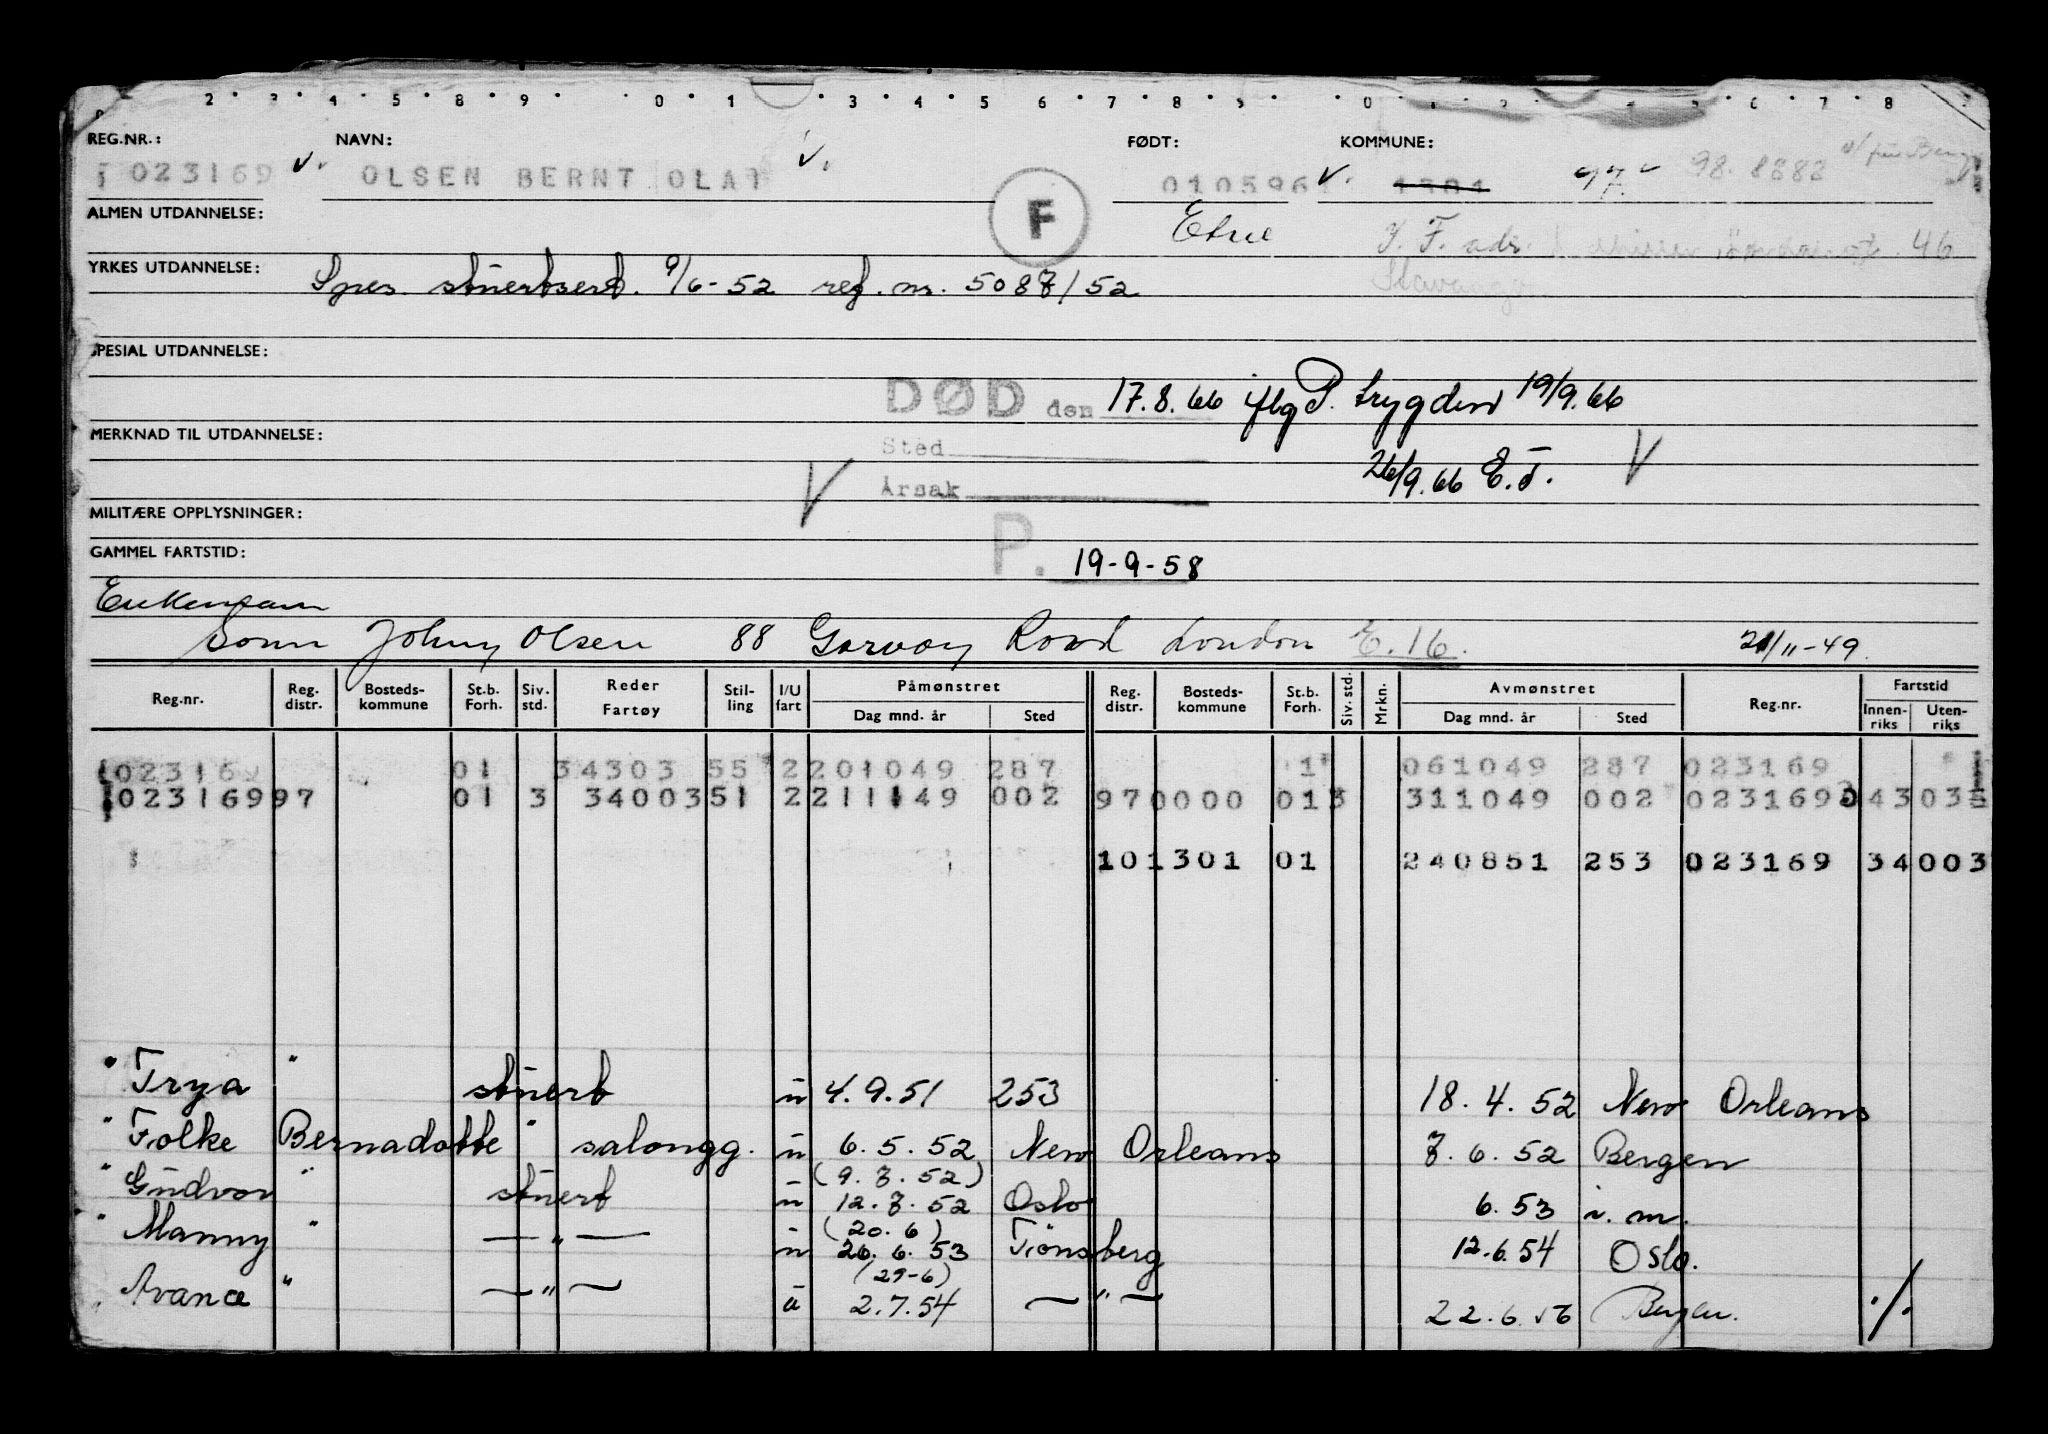 2 3 4 5 8 9 0 1 3 4 5 6 7 8 9 0 1 2 5 6 7 8
REG.NR.: NAVN: FØDT: KOMMUNE:
023169 v. OLSEN BERNT OLAF v. 010596 v. 1301 97 98. 8888
F
ALMEN UTDANNELSE: Etne Y. F. adr. 46
YRKES UTDANNELSE: Spes. stuertsert. 9/6-52 reg. nr. 5087/52 Stavanger
SPESIAL UTDANNELSE:
DØD den 17.8.66 iflg P. trygden 19/9.66
MERKNAD TIL UTDANNELSE: Sted
26/9.66 E.T. V
V Årsak
MILITÆRE OPPLYSNINGER:
GAMMEL FARTSTID: P. 19-9-58
Enkemann
Sønn Johny Olsen 88 Garvay Road London E.16. 21/11-49.
Reg.nr. Reg. distr. Bosteds-kommune St.b. Forh. Siv. std. Reder Fartøy Stil-ling I/U fart Påmønstret Dag mnd. år Sted Reg. distr. Bosteds-kommune St.b. Forh. Siv. std. Mrkn. Avmønstret Dag mnd. år Sted Reg.nr. Fartstid Innen-riks Uten-riks
023169 01 34303 55 2 201049 287 1 061049 287 023169
023169 97 01 3 34003 51 2 211149 002 97 0000 01 3 311049 002 023169 43 035
10 1301 01 240851 253 023169 34 003
" Trya " stuert u 4.9.51 253 18.4.52 New Orleans
" Folke Bernadotte " salongg. u 6.5.52 New Orleans 7.6.52 Bergen
(9.7.52)
" Gudvor " stuert u 12.7.52 Oslo 6.53 i.m.
(20.6)
" Manny " — " — u 26.6.53 Tönsberg 12.6.54 Oslo.
(29-6)
" Avance " — " — u 2.7.54 — " — 22.6.56 Bergen. ./.